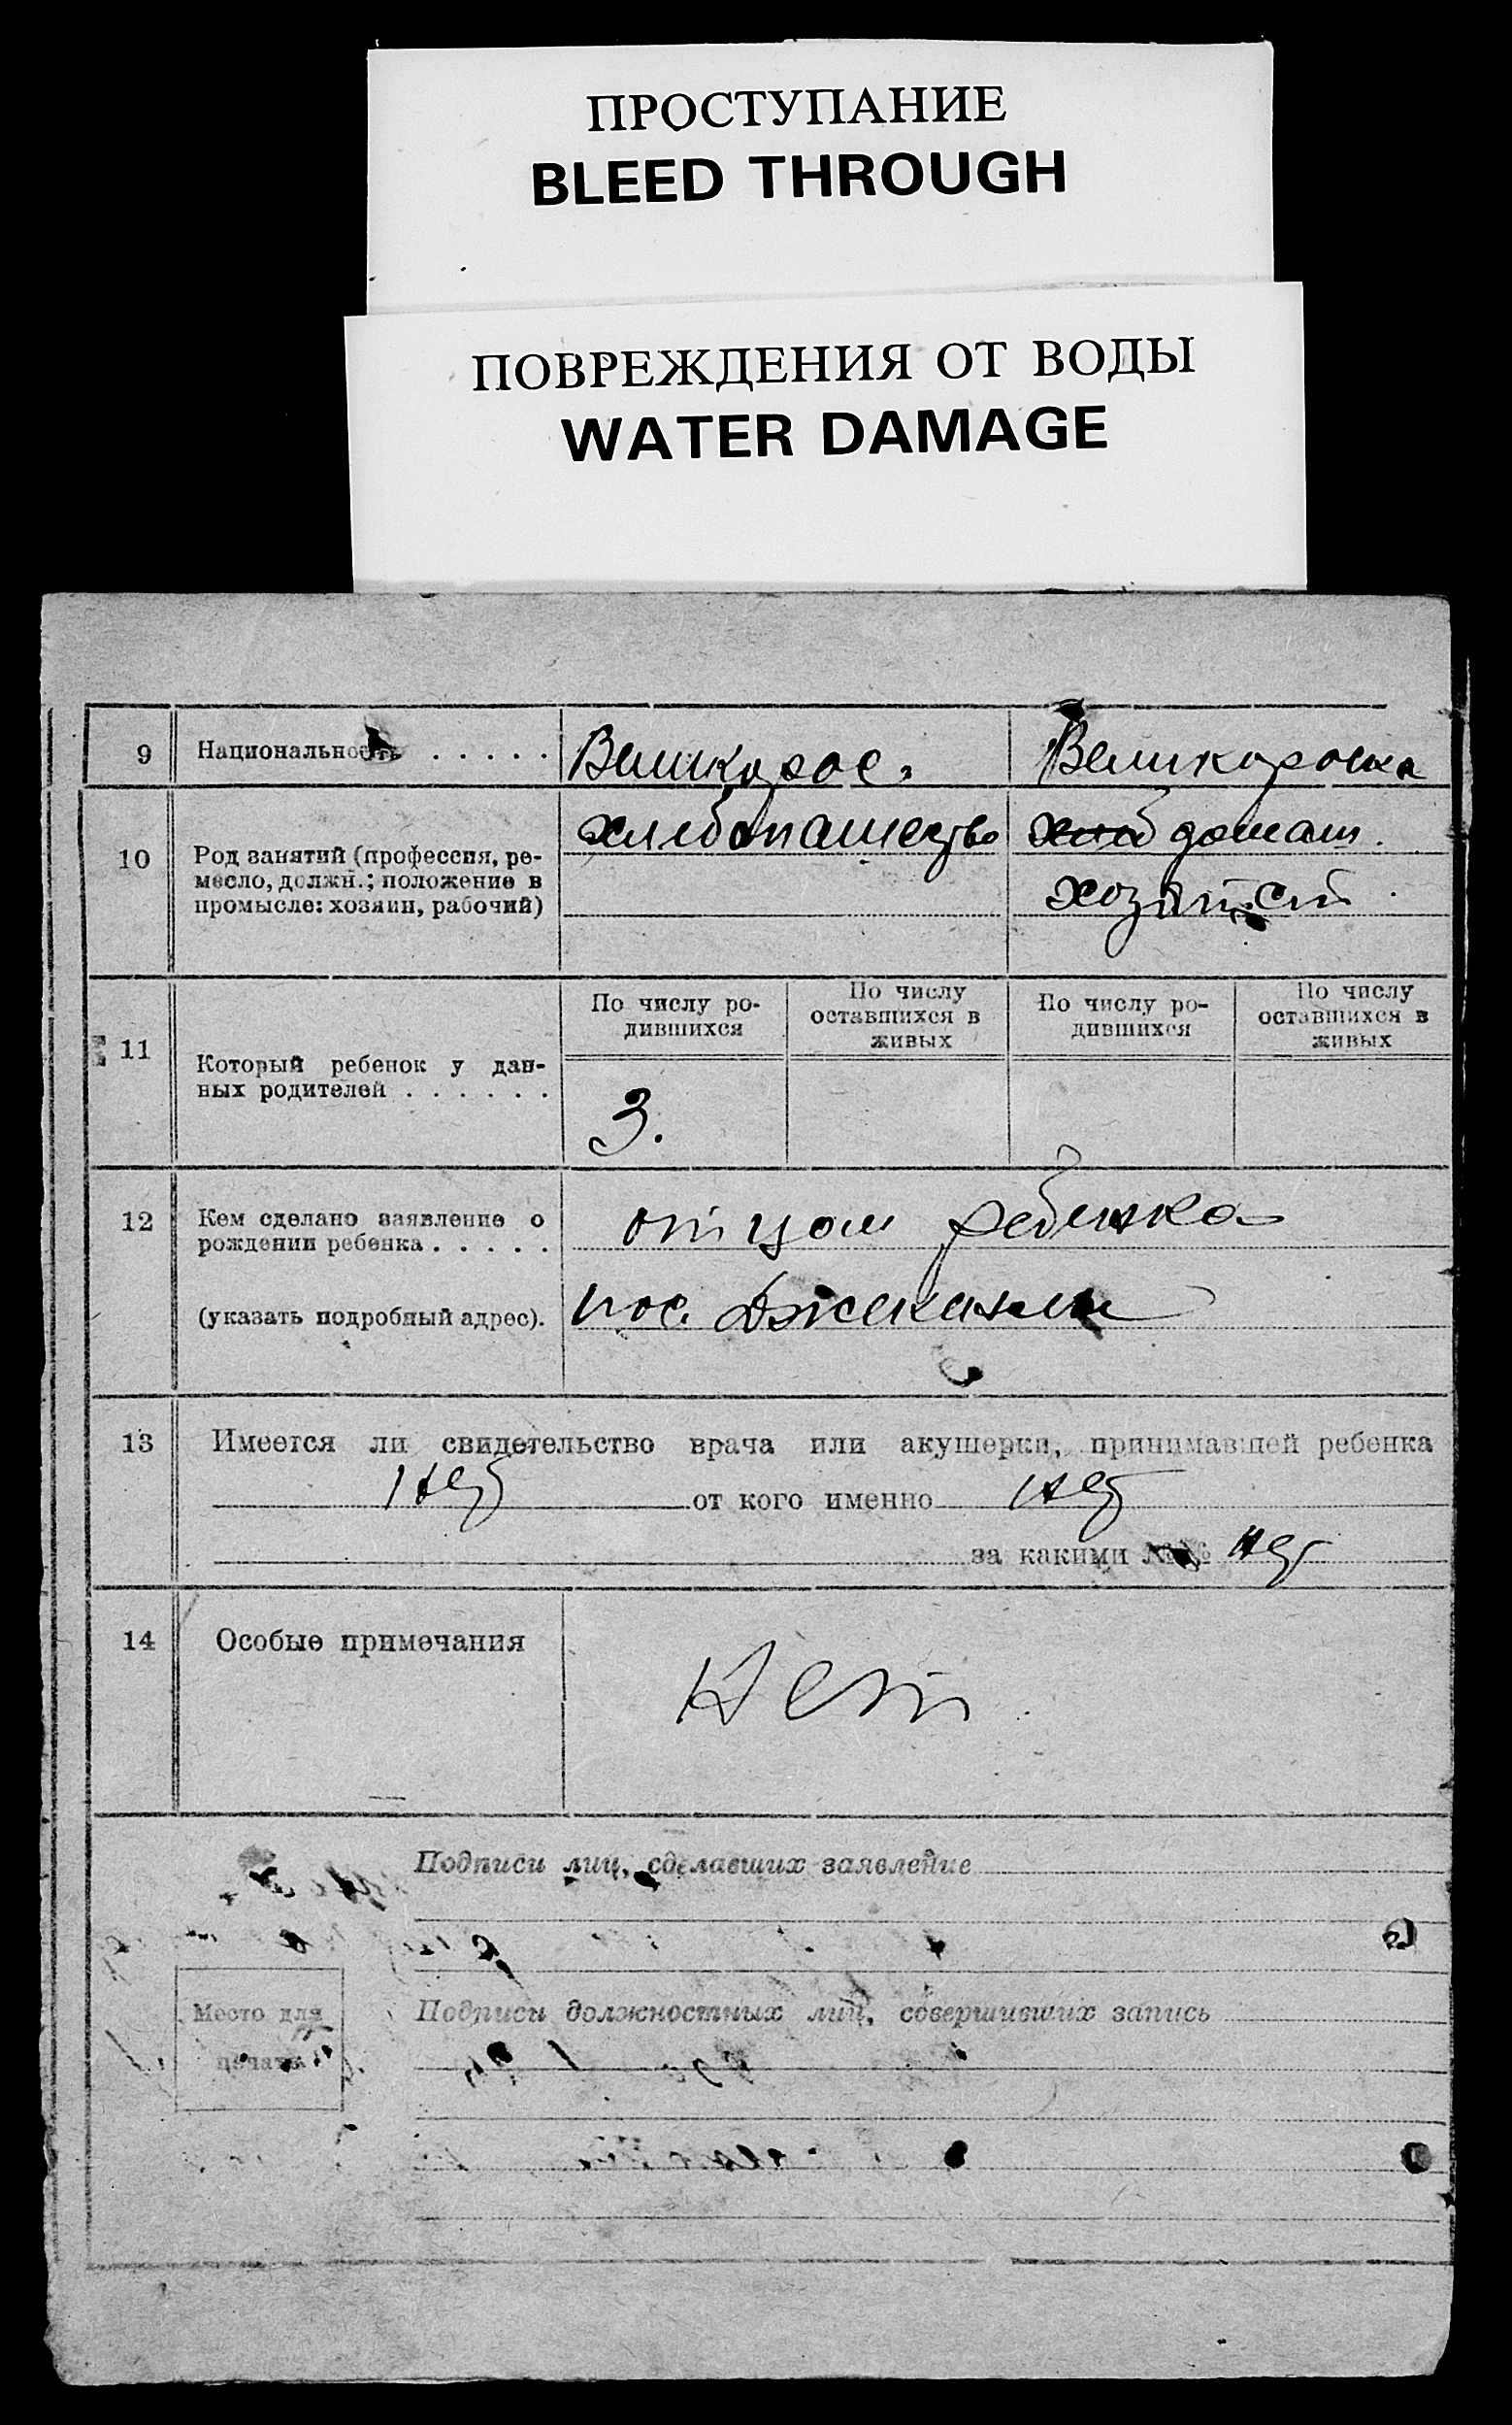 ПРОСТУПАНИЕ
BLEED THROUGH
ПОВРЕЖДЕНИЯ ОТ ВОДЫ
WATER DAMAGE
9 Национальность . . . . . Великорос. Великороска
10 Род занятий (профессия, ре-
месло, должн.; положение в
промысле: хозяин, рабочий)
хлебопашество
домаш.
хозяйст.
11 Который ребенок у дан-
ных родителей . . . . . .
По числу ро-
дившихся
По числу
оставшихся в
живых
По числу ро-
дившихся
По числу
оставшихся в
живых
3.
12 Кем сделано заявление о
рождении ребенка . . . . .
отцом ребенка
(указать подробный адрес). пос.
13 Имеется ли свидетельство врача или акушерки, принимавшей ребенка
нет от кого именно нет
за какими №№ нет
14 Особые примечания нет
Подписи лиц, сделавших заявление
Место для
печати
Подписи должностных лиц, совершивших запись